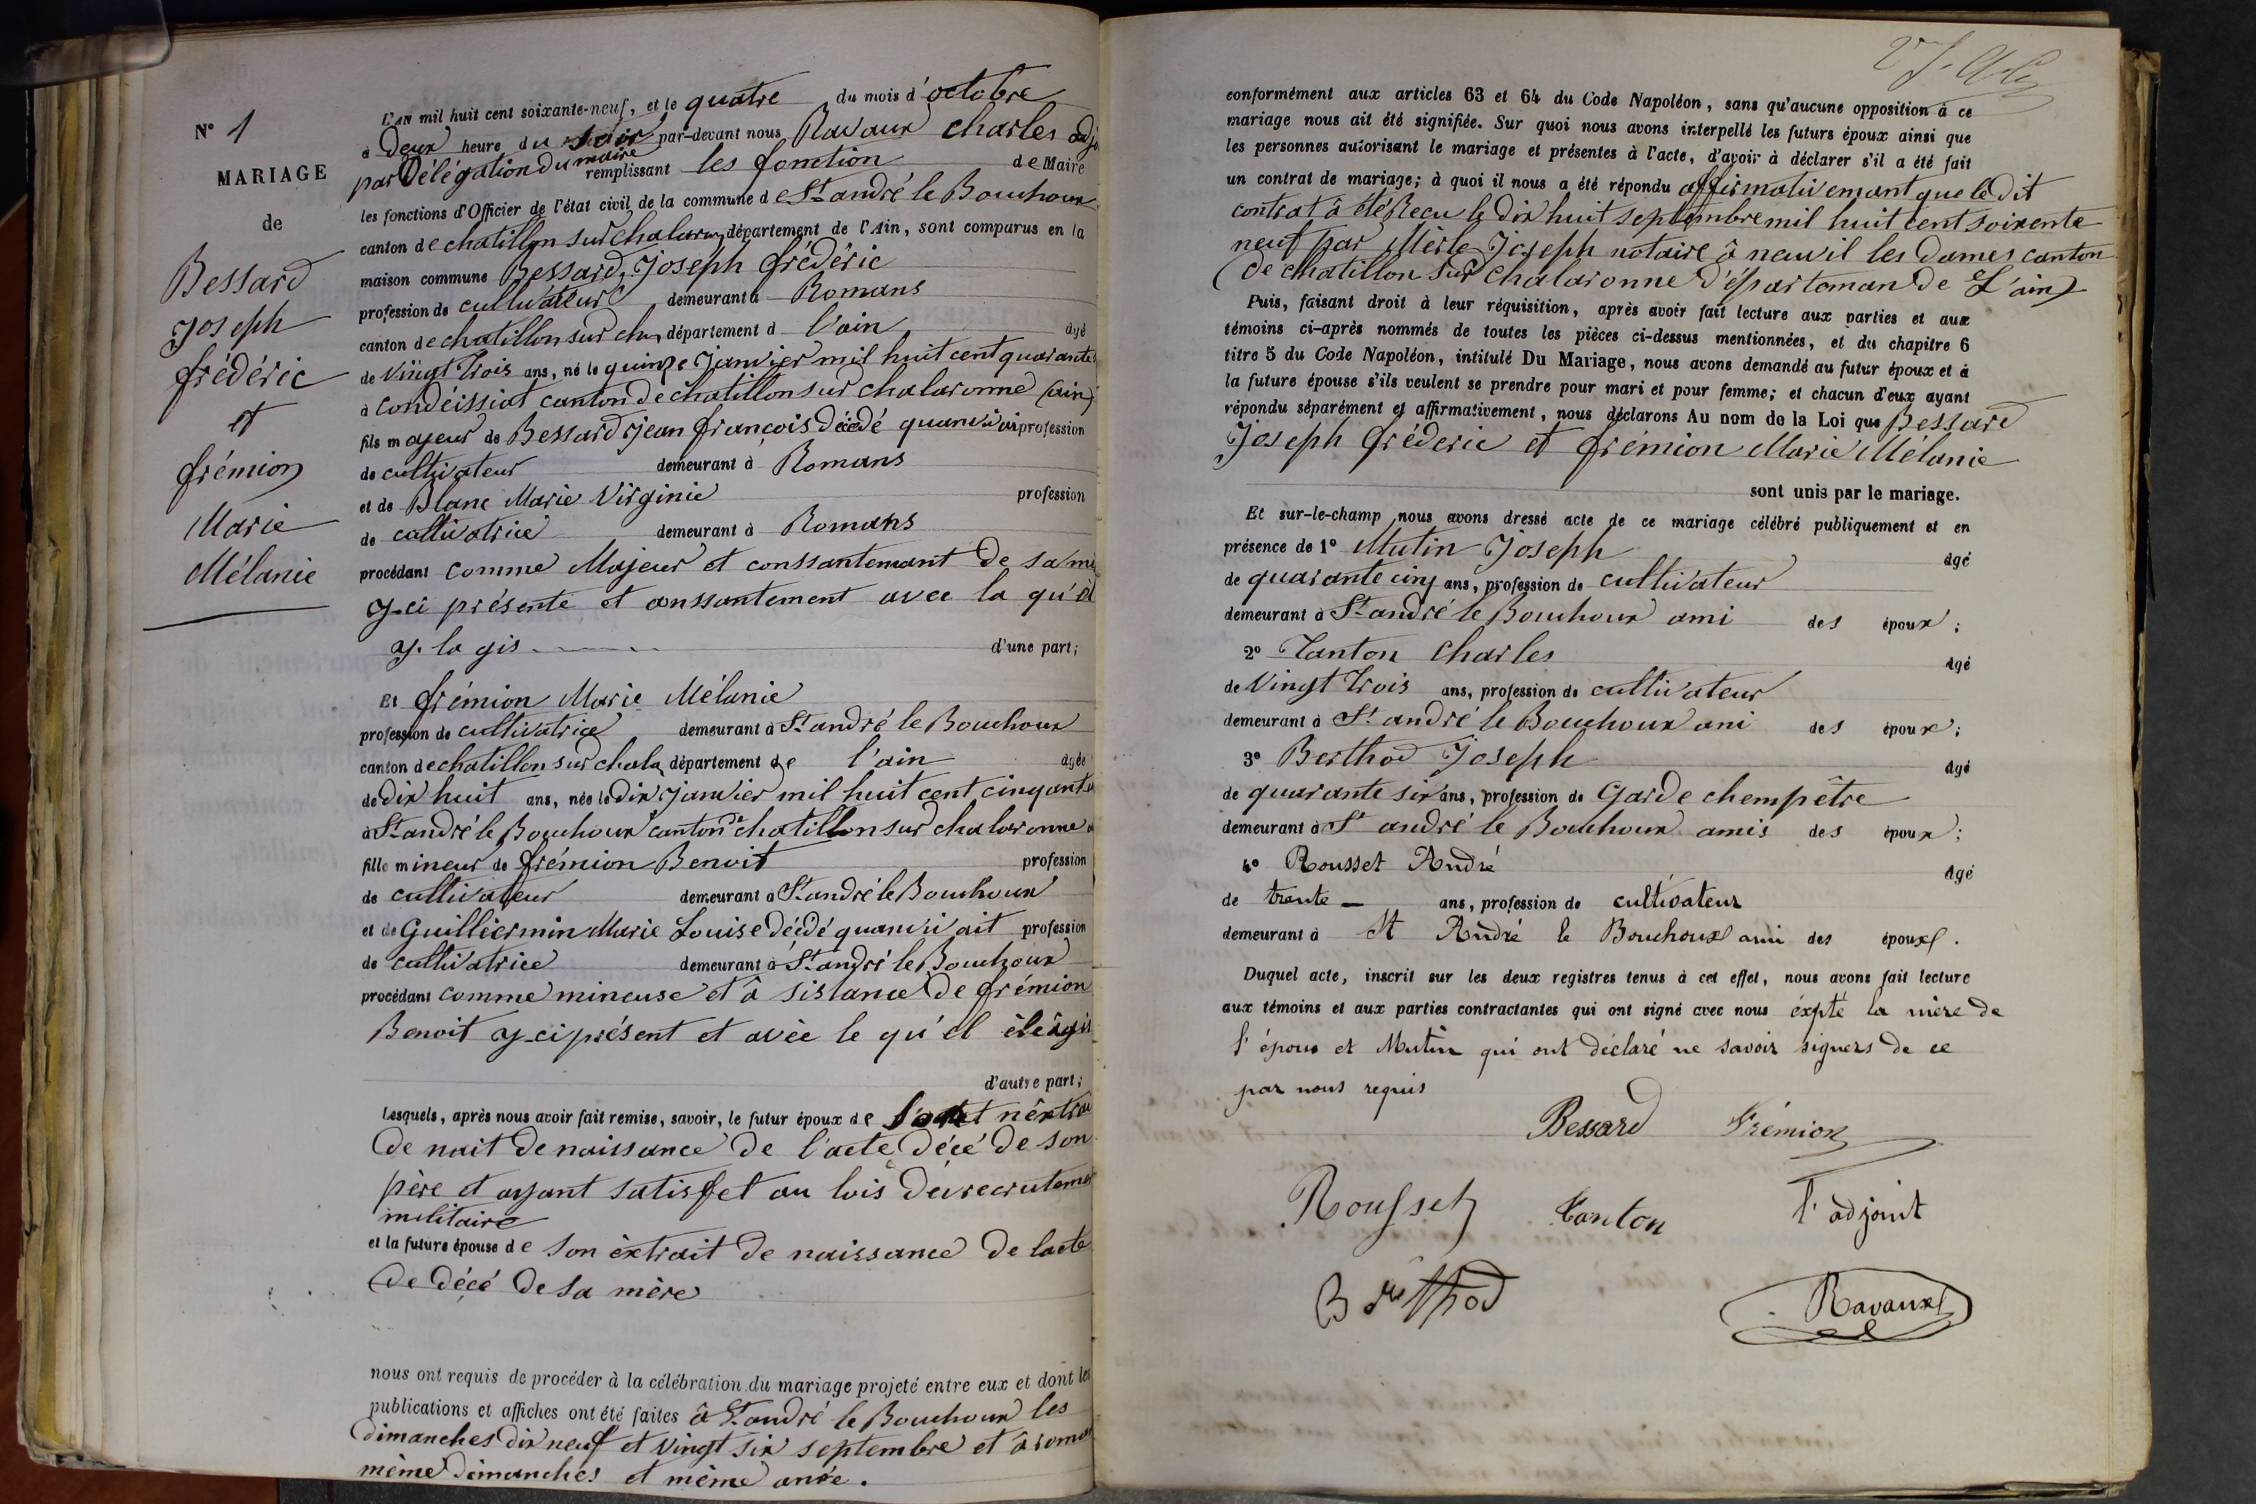 N° 1
MARIAGE
de
Bessard
Joseph
frédéric
et
frémion
Marie
Mélanie
L'AN mil huit cent soixante-neuf, et le quatre du mois d'octobre
à deux heure du soir par-devant nous Ravaux charles adj
par Délégation du maire remplissant les fonction de Maire
les fonctions d'Officier de l'état civil de la commune de St andré le Bouchoux
canton de chatillon sur chalaron département de l'Ain, sont comparus en la
maison commune Bessard, Joseph frédéric
profession de cultivateur demeurant à Romans
canton de chatillon sur cha département d l'ain âgé
de vingt trois ans, né le quinze Janvier mil huit cent quarante
à condeissiat canton de chatillon sur chalaronne (ain)
fils majeur de Bessard jean françois décédé quan vivai profession
de cultivateur demeurant à Romans
et de Blanc Marie Virginie profession
de cultivatrice demeurant à Romans
procédant comme Majeur et conssantemant de sa mè
y-ci présente et conssantement avec la qu'él
y. la gis d'une part;
Et frémion Marie Mélanie
profession de cultivatrice demeurant à St andré le Bouchoux
canton de chatillon sur chala département de l'ain âgée
de dix huit ans, née le dix janvier mil huit cent cinquante
à St andré le Bouchoux canton de chatillon sur chalaronne
fille mineur de frémion Benoit profession
de cultivateur demeurant à St andré le Bouchoux
et de Guilliermin Marie Louise décédé quan vivait profession
de cultivatrice demeurant à St andré le Bouchoux
procédant comme mineuse et à sistance de frémion
Benoit y-ci présent et avèc le qu'el
d'autre part;
Lesquels, après nous avoir fait remise, savoir, le futur époux de
de nait de naissance de l'acte décé de son
père et ayant satisfet au lois deu recrutemen
militaire
et la future épouse de son èxtrait de naissance de lacte
de décé de sa mère
nous ont requis de procéder à la célébration du mariage projeté entre eux et dont les
publications et affiches ont été faites à St andré le Bouchoux les
dimanches dix neuf et vingt six septembre et à roma
même dimanches et même anée.
conformément aux articles 63 et 64 du Code Napoléon, sans qu'aucune opposition à ce
mariage nous ait été signifiée. Sur quoi nous avons interpellé les futurs époux ainsi que
les personnes autorisant le mariage et présentes à l'acte, d'avoir à déclarer s'il a été fait
un contrat de mariage; à quoi il nous a été répondu affirmativemant que le dit
contrat à été Recu le dix huit septembre mil huit cent soixente
neuf par Mèrle Joseph notaire à neuvil les dames canton
de chatillon sur chalaronne départoman de L'ain)
Puis, faisant droit à leur réquisition, après avoir fait lecture aux parties et aux
témoins ci-après nommés de toutes les pièces ci-dessus mentionnées, et du chapitre 6
titre 5 du Code Napoléon, intitulé Du Mariage, nous avons demandé au futur époux et à
la future épouse s'ils veulent se prendre pour mari et pour femme; et chacun d'eux ayant
répondu séparément et affirmativement, nous déclarons Au nom de la Loi que Bessard
Joseph fréderic et frémion Marie Mélanie
sont unis par le mariage.
Et sur-le-champ nous avons dressé acte de ce mariage célébré publiquement et en
présence de 1° Mutin Joseph âgé
de quarante cinq ans, profession de cultivateur
demeurant à St andré le Bouchoux ami des époux;
2° Tanton Charles âgé
de vingt trois ans, profession de cultivateur
demeurant à St andré le Bouchoux ami des époux;
3° Berthod Joseph âgé
de quarante six ans, profession de Garde chempêtre
demeurant à St andré le Bouchoux amis des époux;
4° Rousset André âgé
de trente ans, profession de cultivateur
demeurant à St André le Bouchoux ami des époux.
Duquel acte, inscrit sur les deux registres tenus à cet effet, nous avons fait lecture
aux témoins et aux parties contractantes qui ont signé avec nous éxpté la mère de
l'époux et Mutin qui ont déclaré ne savoir signers de ce
par nous requis
Bessard Frémion
Rousset Tanton l'adjoint
Berthod Ravaux